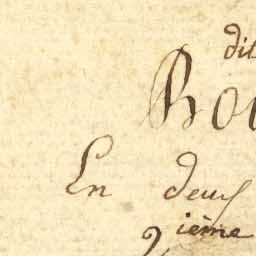 dit
Bou
En deux
2ième